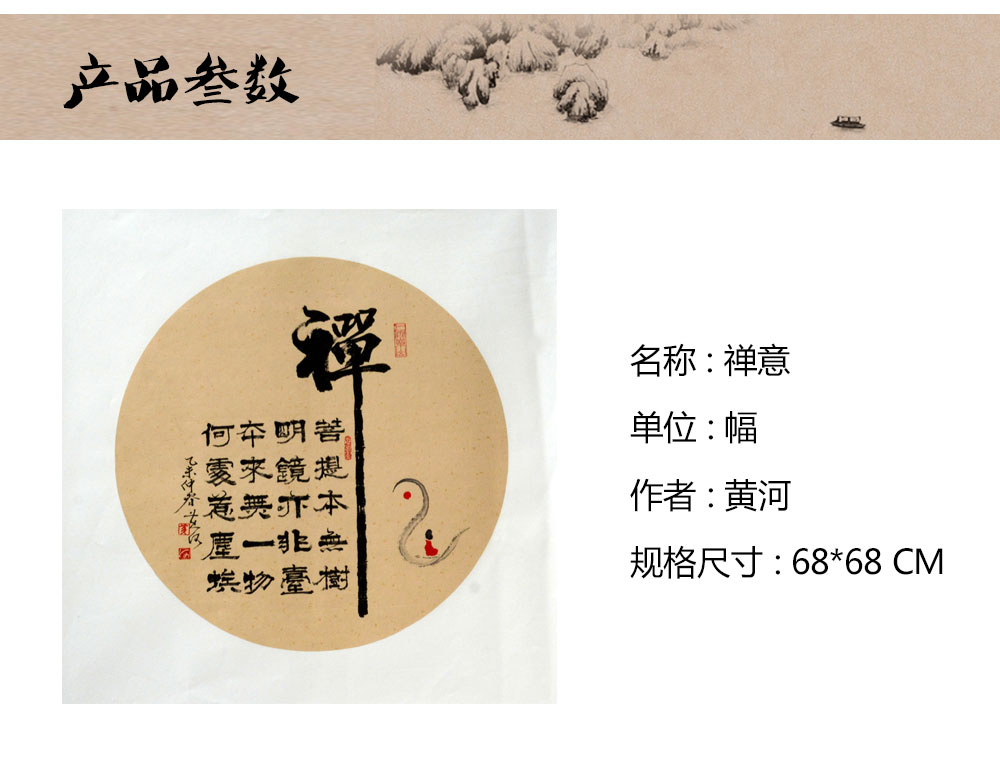 产品叁数
禅
菩提本無樹
明鏡亦非臺
本來無一物
何處惹塵埃
乙未仲春黄河
名称 : 禅意
单位 : 幅
作者 : 黄河
规格尺寸 : 68*68 CM